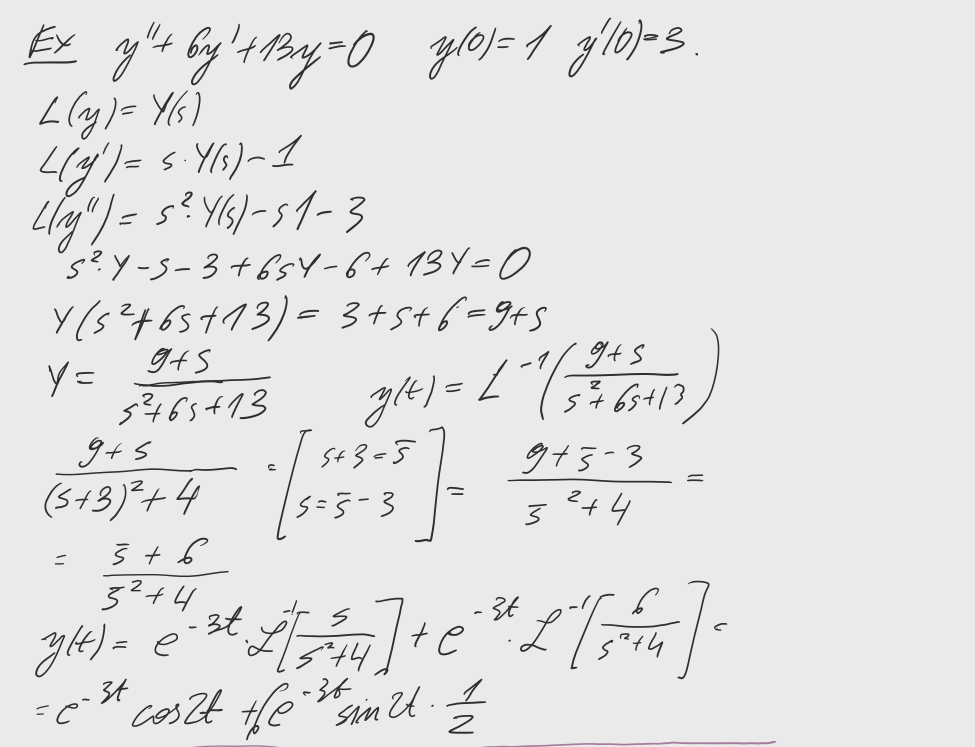 Ex y'' + 6y' + 13y = 0 y(0) = 1 y'(0) = 3.
L(y) = Y(s)
L(y') = s · Y(s) - 1
L(y'') = s² · Y(s) - s1 - 3
s² · Y - s - 3 + 6sY - 6 + 13Y = 0
Y(s² + 6s + 13) = 3 + s + 6 = 9 + s
Y = (9+s)/(s² + 6s + 13) y(t) = L⁻¹((9+s)/(s² + 6s + 13))
(9+s)/((s+3)² + 4) = [s+3 = s̄ s = s̄ - 3] = (9 + s̄ - 3)/(s̄² + 4) =
= (s̄ + 6)/(s̄² + 4)
y(t) = e^(-3t) · ℒ⁻¹[s/(s² + 4)] + e^(-3t) · ℒ⁻¹[6/(s² + 4)] =
= e^(-3t) cos 2t + 6e^(-3t) sin 2t · 1/2